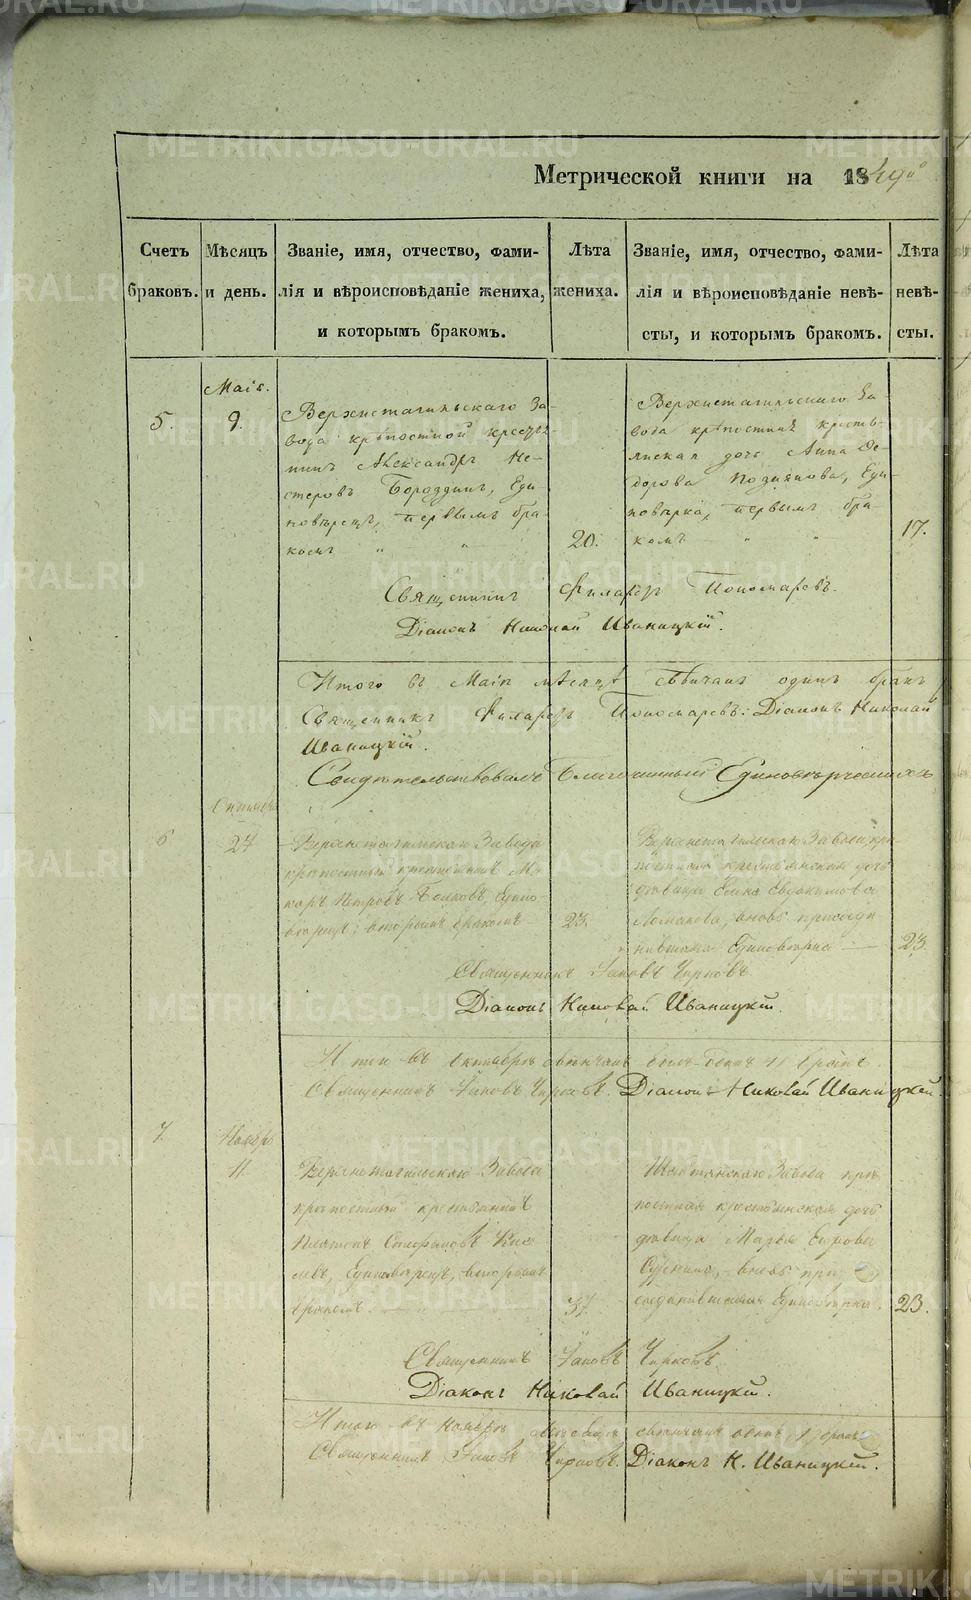 Метрической книги на 1849й
Счетъ браковъ.
Мѣсяцъ и день.
Званіе, имя, отчество, фами-
лія и вѣроисповѣданіе жениха,
и которымъ бракомъ.
Лѣта жениха.
Званіе, имя, отчество, фами-
лія и вѣроисповѣданіе невѣ-
сты, и которымъ бракомъ.
Лѣта невѣ-
сты.
Маія.
5.
9.
Верхнетагильскаго За-
вода крѣпостной кресть
нинъ Александръ Не-
стеровъ Бороздинъ, Еди-
новѣрецъ, первымъ бра-
комъ " "
20.
Верхнетагильскаго За-
вода крѣпостная кресть-
янская дочь Анна Ѳе-
дорова Позднякова, Еди-
новѣрка, первымъ бра-
комъ " "
17.
Священникъ Филаретъ Пономаревъ.
Діаконъ Николай Иваницкій.
Итого въ Маіи мѣсяцѣ бвѣнчанъ одинъ бракъ
Священникъ Филаретъ Пономаревъ: Діаконъ Николай
Иваницкій.
Свидѣтельствовалъ Благочинный Единовѣрческихъ
6
24
Верхнетагильскаго Завода
крѣпостный крестьянинъ Ма
каръ Петровъ Едино
вѣрецъ, вторымъ бракомъ
23.
Верхнетагильскаго Завода крѣ
постная крестьянская дочь
дѣвица Евдокимова
вновь присоеди
нившаяся Единовѣрка
23.
Священникъ Іаковъ Чирковъ
Діаконъ Николай Иваницкій.
Итого въ Октябрѣ вѣнчанъ былъ одинъ 1) бракъ.
Священникъ Іаковъ Чирковъ. Діаконъ Николай Иваницкій.
7.
Ноябр
11.
Верхнетагильскаго Завода
крѣпостный крестьянинъ
Платонъ Стефановъ
Единовѣрецъ, вторымъ
бракомъ.
37.
Завода крѣ
постная крестьянская дочь
дѣвица Марья
вновь при
соединившаяся Единовѣрка.
23.
Священникъ Іаковъ Чирковъ
Діаконъ Николай Иваницкій.
Итого въ Ноябрѣ мѣсяцѣ вѣнчанъ одинъ 1) бракъ
Священникъ Іаковъ Чирковъ. Діаконъ Н. Иваницкій.
METRIKI.GASO-URAL.RU